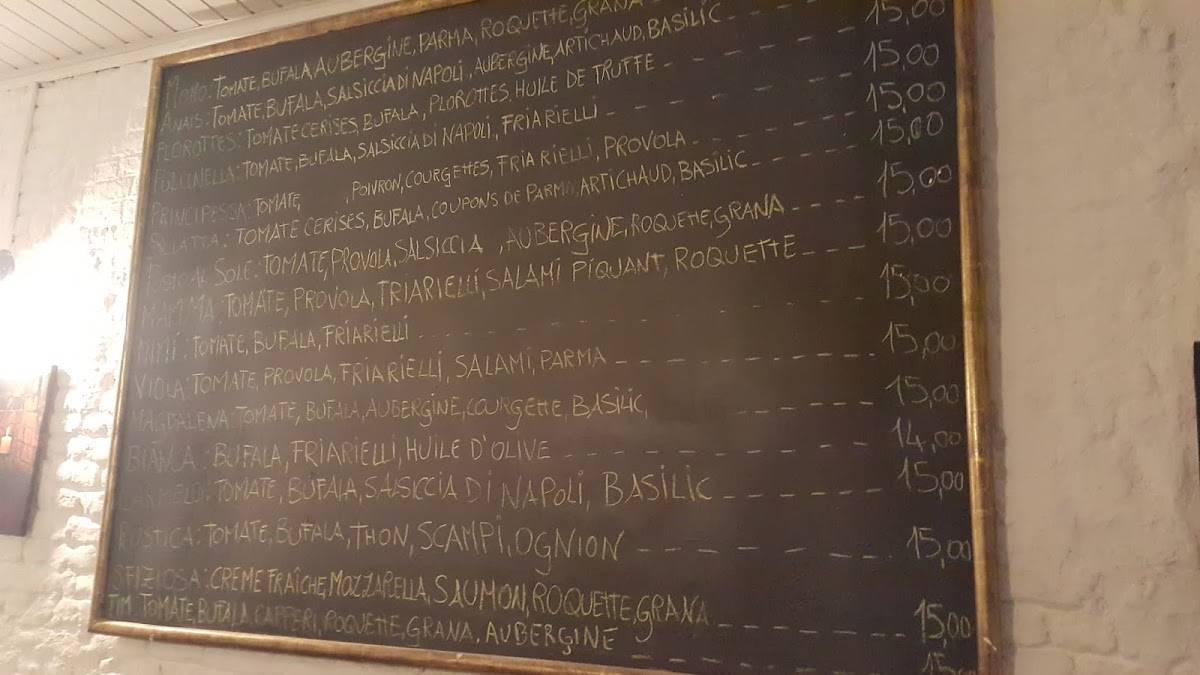 MOMO: TOMATE, BUFALA, AUBERGINE, PARMA, ROQUETTE, GRANA
ANAIS: TOMATE, BUFALA, SALSICCIA DI NAPOLI, AUBERGINE, ARTICHAUD, BASILIC 15,00
PLOROTTES: TOMATE CERISES, BUFALA, PLOROTTES, HUILE DE TRUFFE 15,00
PULCINELLA: TOMATE, BUFALA, SALSICCIA DI NAPOLI, FRIARIELLI 15,00
PRINCIPESSA: TOMATE, , POIVRON, COURGETTES, FRIARIELLI, PROVOLA 15,00
TOMATE CERISES, BUFALA, COUPONS DE PARMA, ARTICHAUD, BASILIC 15,00
SOLE: TOMATE, PROVOLA, SALSICCIA , AUBERGINE, ROQUETTE, GRANA 15,00
MAMMA TOMATE, PROVOLA, TRIARIELLI, SALAMI PIQUANT, ROQUETTE 15,00
MIMI: TOMATE, BUFALA, FRIARIELLI 15,00
VIOLA: TOMATE, PROVOLA, FRIARIELLI, SALAMI, PARMA 15,00
MAGDALENA: TOMATE, BUFALA, AUBERGINE, COURGETTE, BASILIC, 15,00
BIANCA: BUFALA, FRIARIELLI, HUILE D'OLIVE 14,00
CARMELO: TOMATE, BUFALA, SALSICCIA DI NAPOLI, BASILIC 15,00
RUSTICA: TOMATE, BUFALA, THON, SCAMPI, OGNION 15,00
SFIZIOSA: CREME FRAÎCHE, MOZZARELLA, SAUMON, ROQUETTE, GRANA 15,00
TIM TOMATE, BUFALA, CAPPERI, ROQUETTE, GRANA, AUBERGINE 15,00